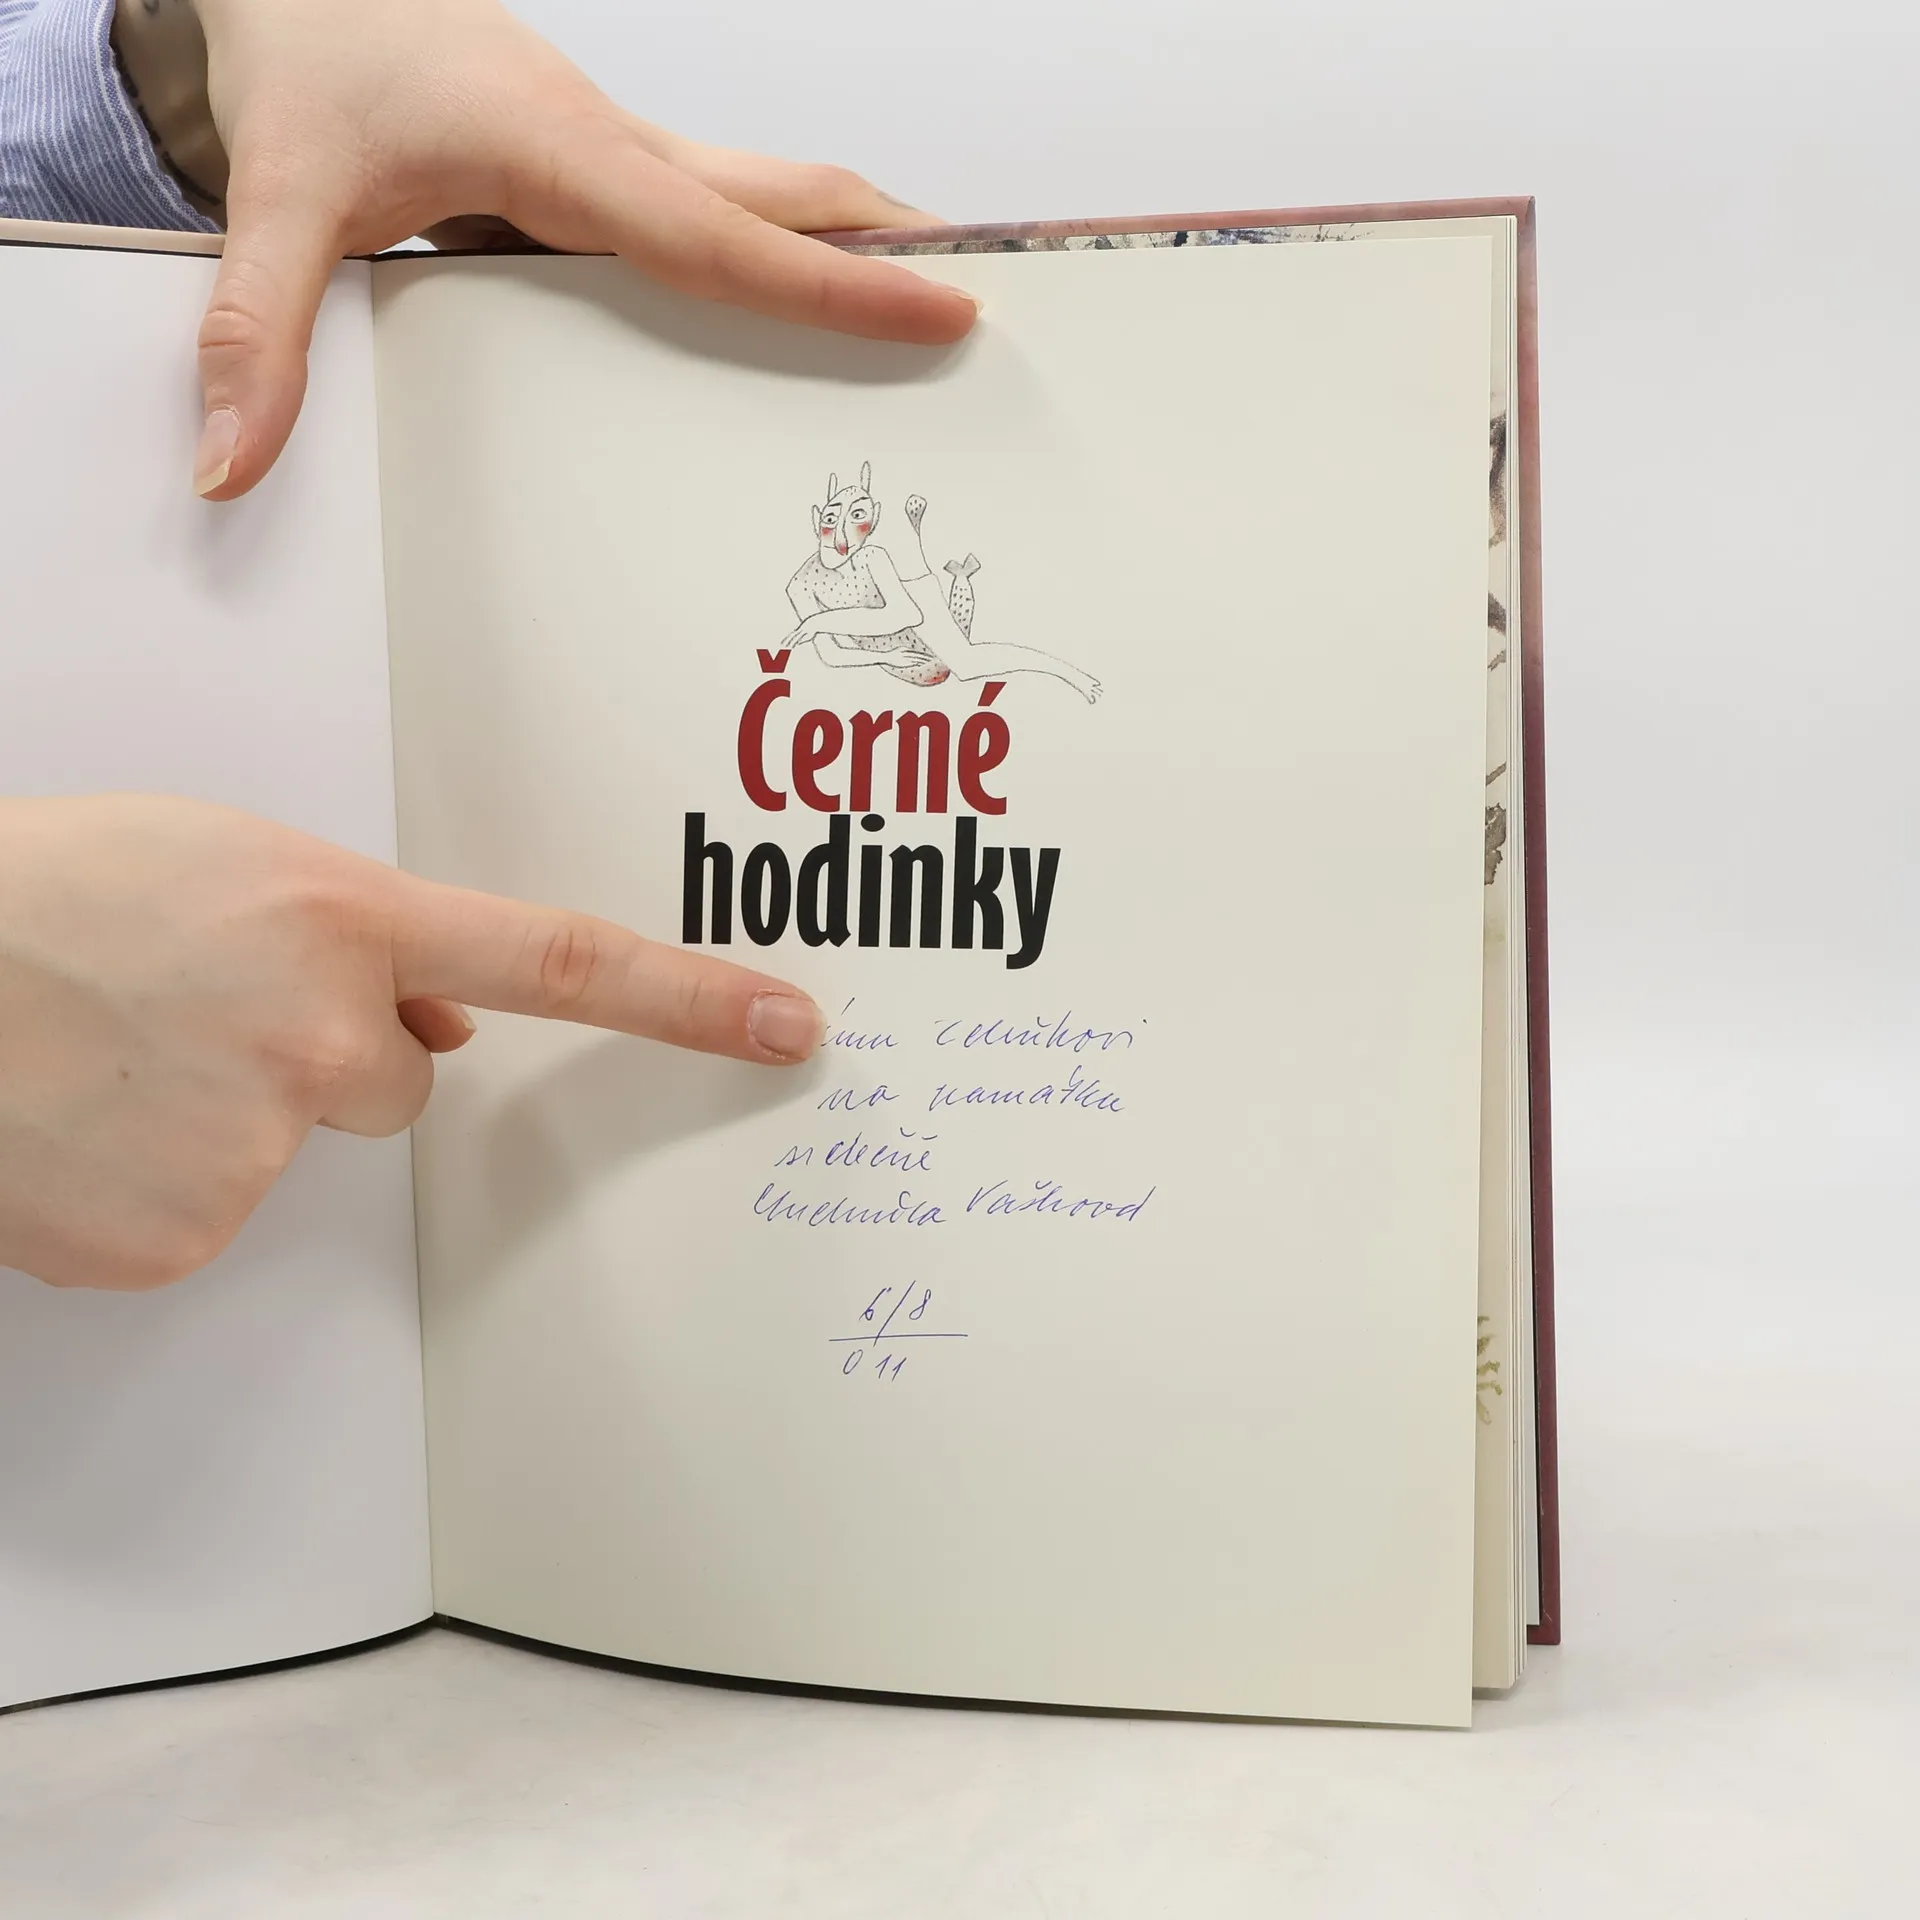 Černé
hodinky
Zdeňkovi
na památku
srdečně
Ludmila Vaňková
6/8
011